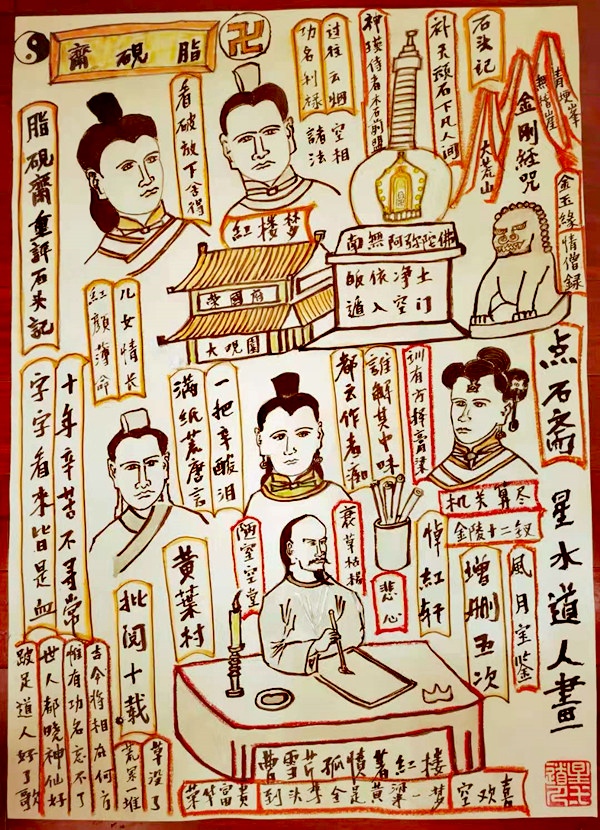 脂砚齋
卍
看破放下舍得
功名利禄
过往云烟
諸法空相
神瑛侍者木石前盟
補天頑石下凡人间
石头记
大荒山
無稽崖
青埂峯
金剛经咒
金玉缘情僧録
脂砚齋重評石头记
紅楼梦
南無阿弥陀佛
皈依净土
遁入空门
榮國府
大观園
儿女情长
紅颜薄命
十年辛苦不寻常
字字看来皆是血
满纸荒唐言
一把辛酸泪
都云作者痴
誰解其中味
训有方择膏粱
点石斋
星水道人畫
机关算尽
金陵十二钗
風月宝鉴
增删五次
悼紅轩
悲心
衰草枯杨
陋室空堂
黄葉村
批阅十载
世人都晓神仙好
惟有功名忘不了
古今将相在何方
荒冢一堆草没了
跛足道人好了歌
曹雪芹孤憤著紅楼
荣华富贵到头来全是黄粱一梦空欢喜